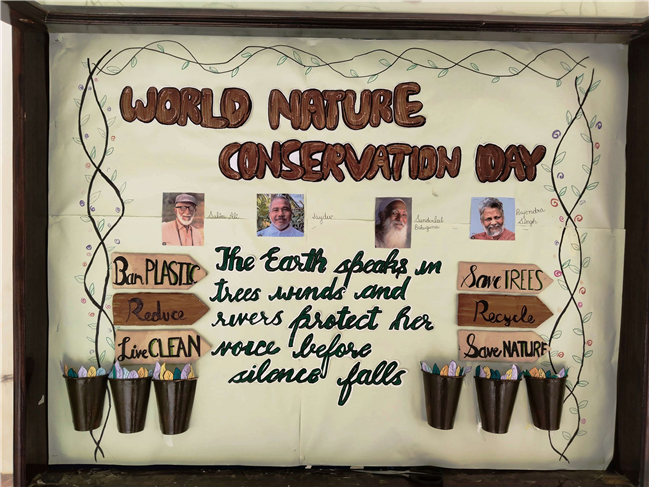 WORLD NATURE
CONSERVATION DAY
Salim Ali
Sunderlal
Bahuguna
Rajendra
Singh
Ban PLASTIC
Reduce
Live CLEAN
The Earth speaks in
trees winds and
rivers protect her
voice before
silence falls
Save TREES
Recycle
Save NATURE